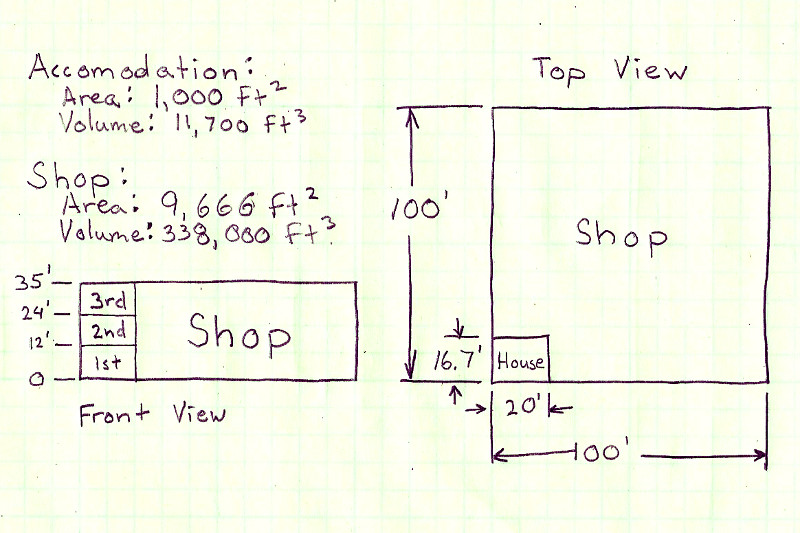 Accomodation:
Area: 1,000 Ft²
Volume: 11,700 Ft³
Shop:
Area: 9,666 Ft²
Volume: 338,000 Ft³
35'
24'
12'
0
3rd
2nd
1st
Shop
Front View
Top View
100'
Shop
16.7'
House
20'
100'